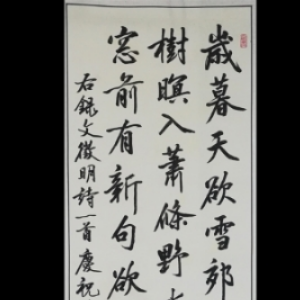 歲暮天欲雪郊
樹暝入蕭條野
窓前有新句欲
右錄文徵明詩一首慶祝